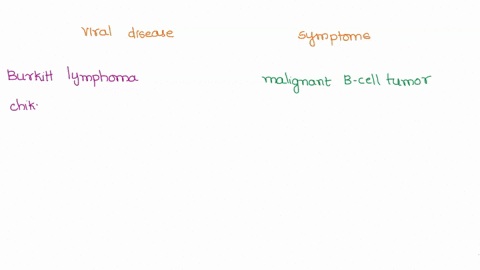 viral disease symptoms
Burkitt lymphoma malignant B-cell tumor
chik.